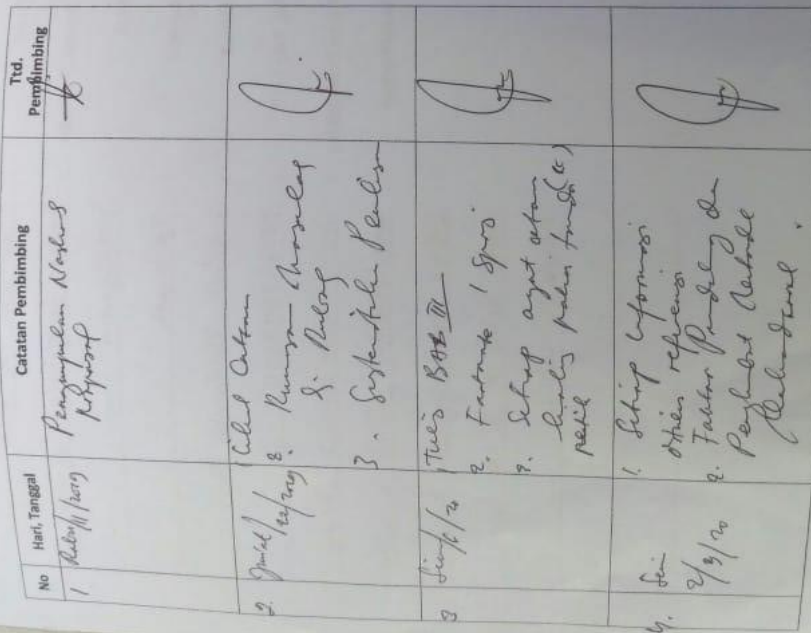 No Hari, Tanggal Catatan Pembimbing Ttd. Pembimbing
1 Rabu/11/2019 Pengumpulan Naskah
Proposal
2. Jum'at/22/2019 1. Lihat Catatan
2. Rumusan Masalah
di
3. Sistematika Penulisan
3 Senin/6/20 1. Tulis BAB III
2. Footnote 1 Spasi
3. Setiap ayat
pakai tanda (")
petik
4. Senin 2/3/20 1. Setiap informasi
referensi
2. Faktor Pendukung dan
Penghambat Metode